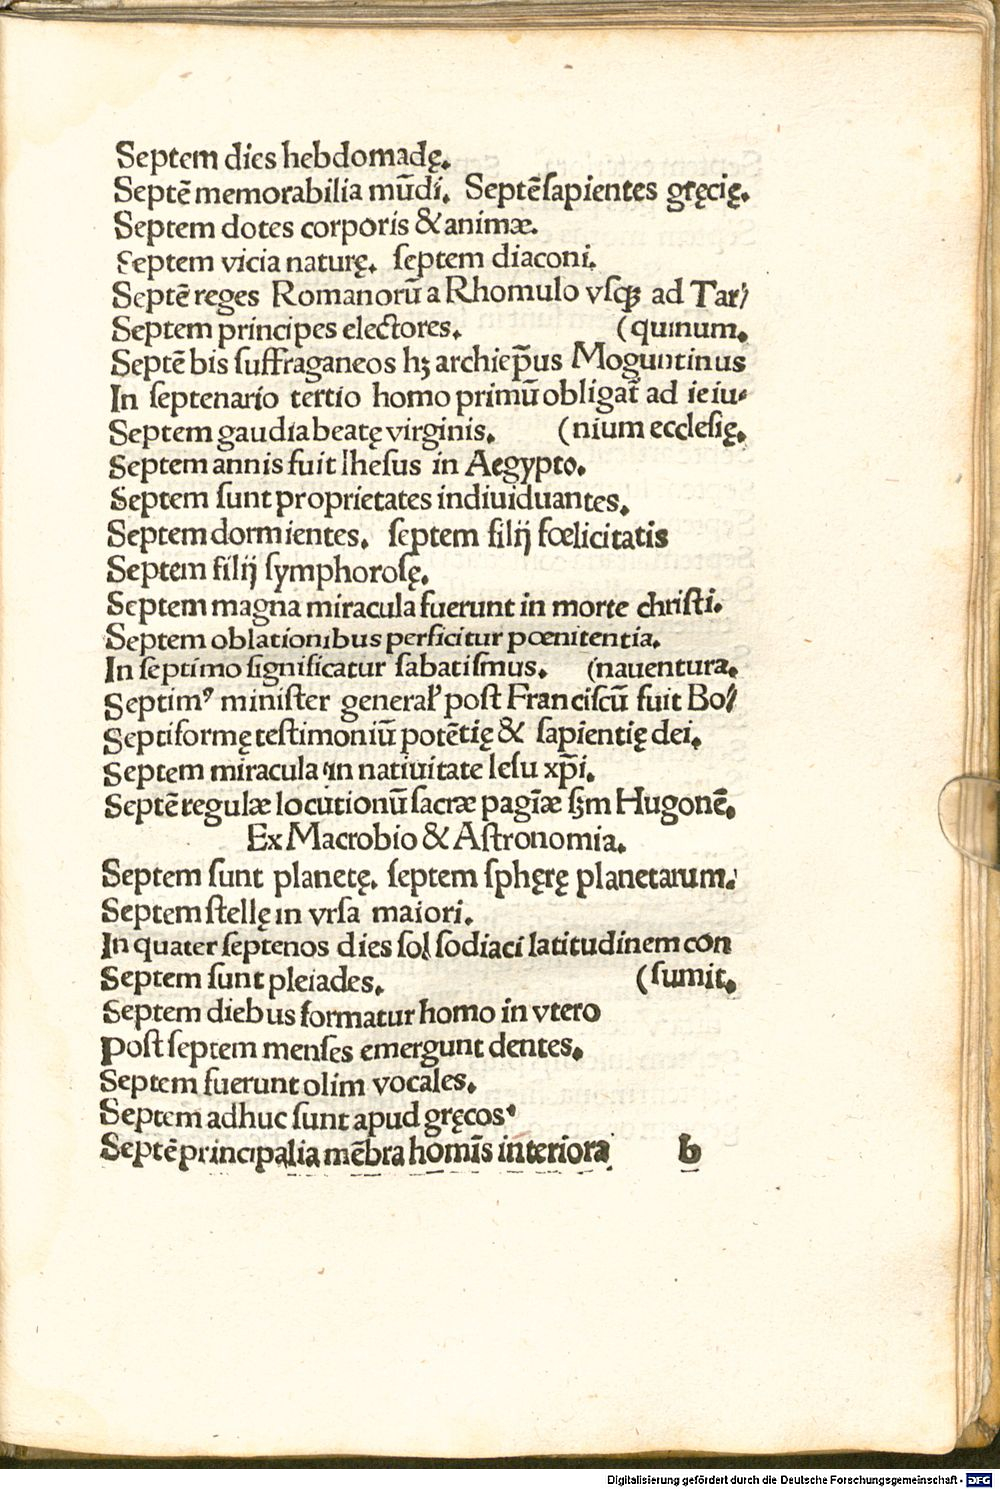 Septem dies hebdomadę.
Septē memorabilia mūdi. Septē ſapientes gręcię.
Septem dotes corporis & animæ.
Septem vicia naturę. ſeptem diaconi.
Septē reges Romanorū a Rhomulo vſqꝫ ad Tar/
Septem principes electores. (quinum.
Septē bis ſuffraganeos hꝫ archiep̄us Moguntinus
In ſeptenario tertio homo primū obligat̄ ad ieiu-
Septem gaudia beatę virginis. (nium eccleſię.
Septem annis fuit Iheſus in Aegypto.
Septem ſunt proprietates indiuiduantes.
Septem dormientes. ſeptem filij fœlicitatis
Septem filij ſymphoroſę.
Septem magna miracula fuerunt in morte chriſti.
Septem oblationibus perficitur pœnitentia.
In ſeptimo ſignificatur ſabatiſmus. (nauentura.
Septimꝰ miniſter general̕ poſt Franciſcū fuit Bo/
Septiformę teſtimoniū potētię & ſapientię dei.
Septem miracula in natiuitate Ieſu xp̄i.
Septē regulæ locutionū ſacræ pagīæ ẜm Hugonē.
Ex Macrobio & Aſtronomia.
Septem ſunt planetę. ſeptem ſphęrę planetarum.
Septem ſtellę in vrſa maiori.
In quater ſeptenos dies ſol ſodiaci latitudinem con
Septem ſunt pleiades. (ſumit.
Septem diebus formatur homo in vtero
Poſt ſeptem menſes emergunt dentes.
Septem fuerunt olim vocales.
Septem adhuc ſunt apud gręcos
Septē principalia mēbra homīs interiora b
Digitalisierung gefördert durch die Deutsche Forschungsgemeinschaft - DFG